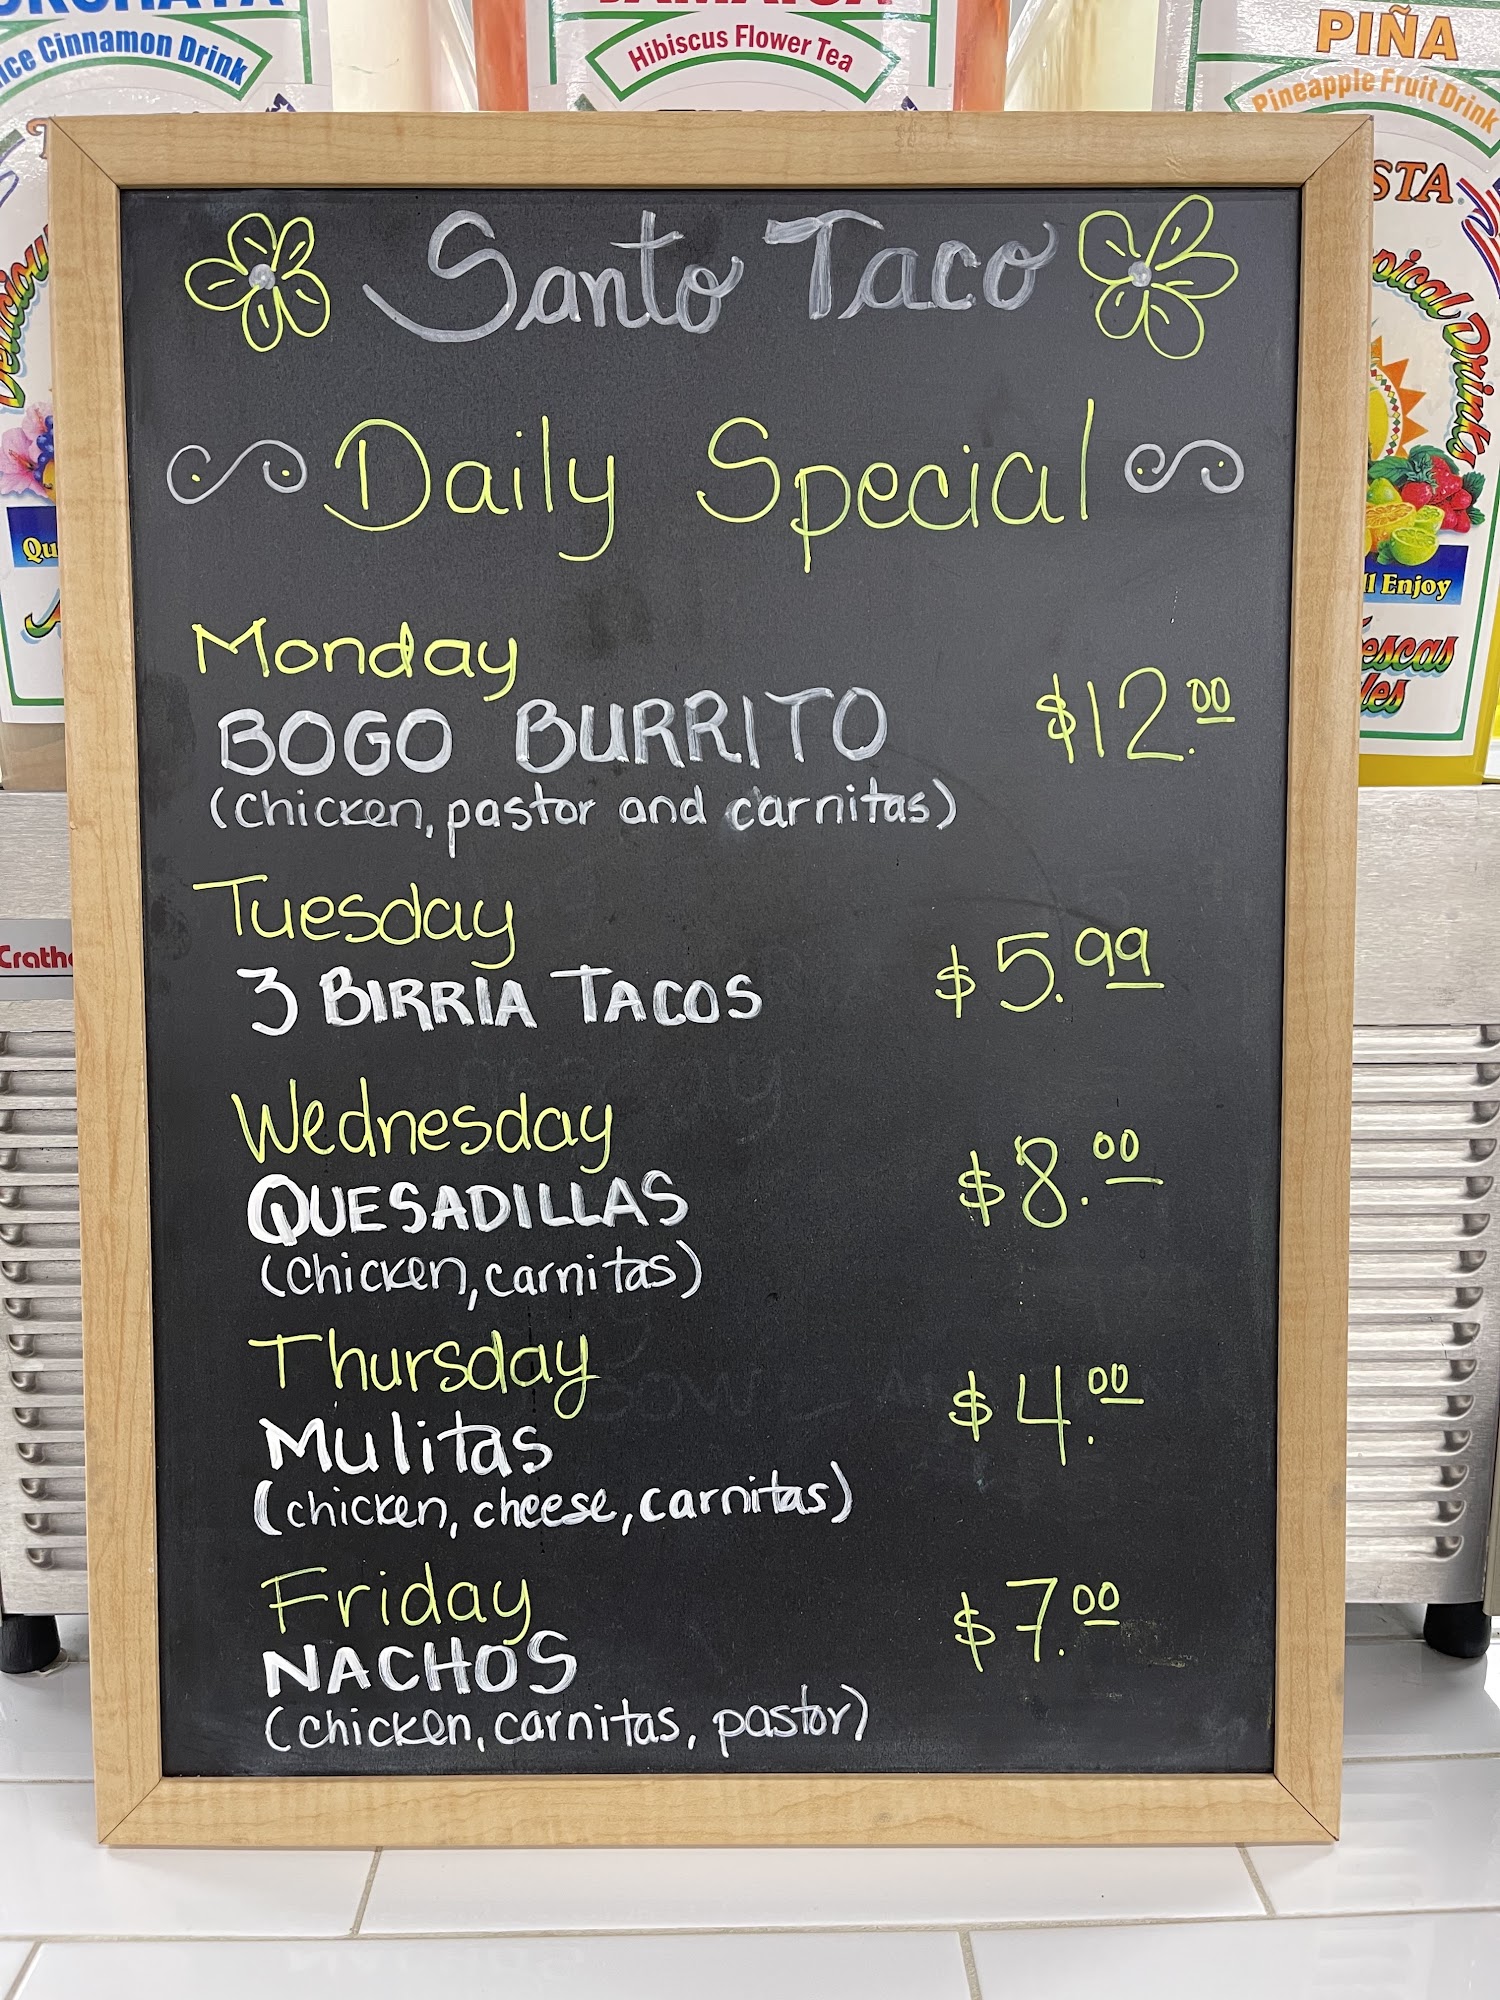 Cinnamon Drink
Hibiscus Flower Tea
PIÑA
Pineapple Fruit Drink
Santo Taco
Daily Special
Monday
BOGO BURRITO $12.00
(chicken, pastor and carnitas)
Tuesday
3 BIRRIA TACOS $5.99
Wednesday
QUESADILLAS $8.00
(chicken, carnitas)
Thursday
Mulitas $4.00
(chicken, cheese, carnitas)
Friday
NACHOS $7.00
(chicken, carnitas, pastor)
Delicious
Drinks
Enjoy